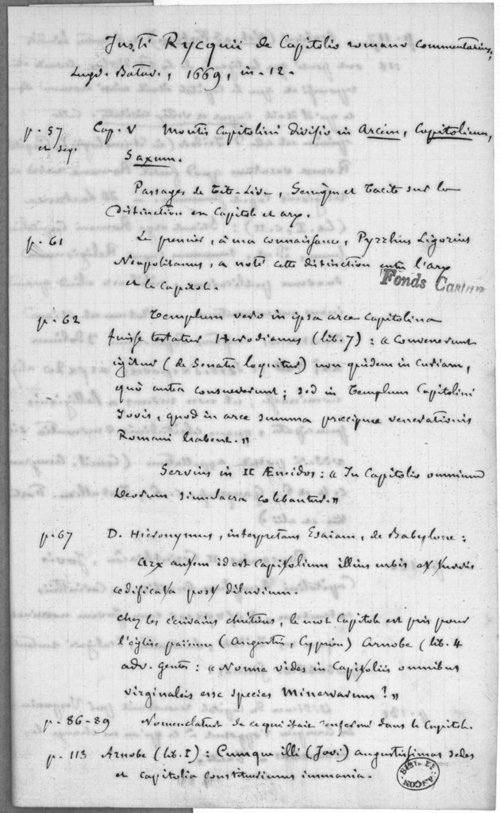 Justi Rycquii de Capitolio romano commentarius,
Lugd. Batav., 1669, in-12.
p. 57 Cap. V Montis Capitolini divisio in Arcem, Capitolium,
et seq. Saxum.
Passages de Tite-Live, et Tacite sur la
Distinction en Capitole et arx.
p. 61 Le premier, à ma connaissance, Pyrrhus Ligorius
Neapolitanus, a noté cette distinction entre l'arx
et le Capitole.
Fonds
p. 62 Templum vero in ipsa arce Capitolina
fuisse testatur Herodianus (lib. 7) : « Convenerunt
igitur (de Senatu loquitur) non quidem in curiam,
quò antea consueverant ; sed in Templum Capitolini
Jovis, quod in arce summa præcipue venerationis
Romani habent. »
Servius in II Æneidos : « In Capitolio omnium
deorum simulacra colebantur. »
p. 67 D. Hieronymus, interpretans Esaiam, de Babylone :
Arx autem id est Capitolium illius urbis est turris
ædificata post diluvium.
chez les écrivains chrétiens, le mot Capitole est pris pour
l'église païenne (Augustin, Cyprien) Arnobe (lib. 4
adv. gentes : « Nonne vides in Capitoliis omnibus
virginaleis esse species Minervarum ? »
p. 86-89 Nomenclature de ce qui était renfermé dans le Capitole.
p. 113 Arnobe (lib. I) : Cumque illi (Jovi) augustissimas sedes
et capitolia constitueritis immania.